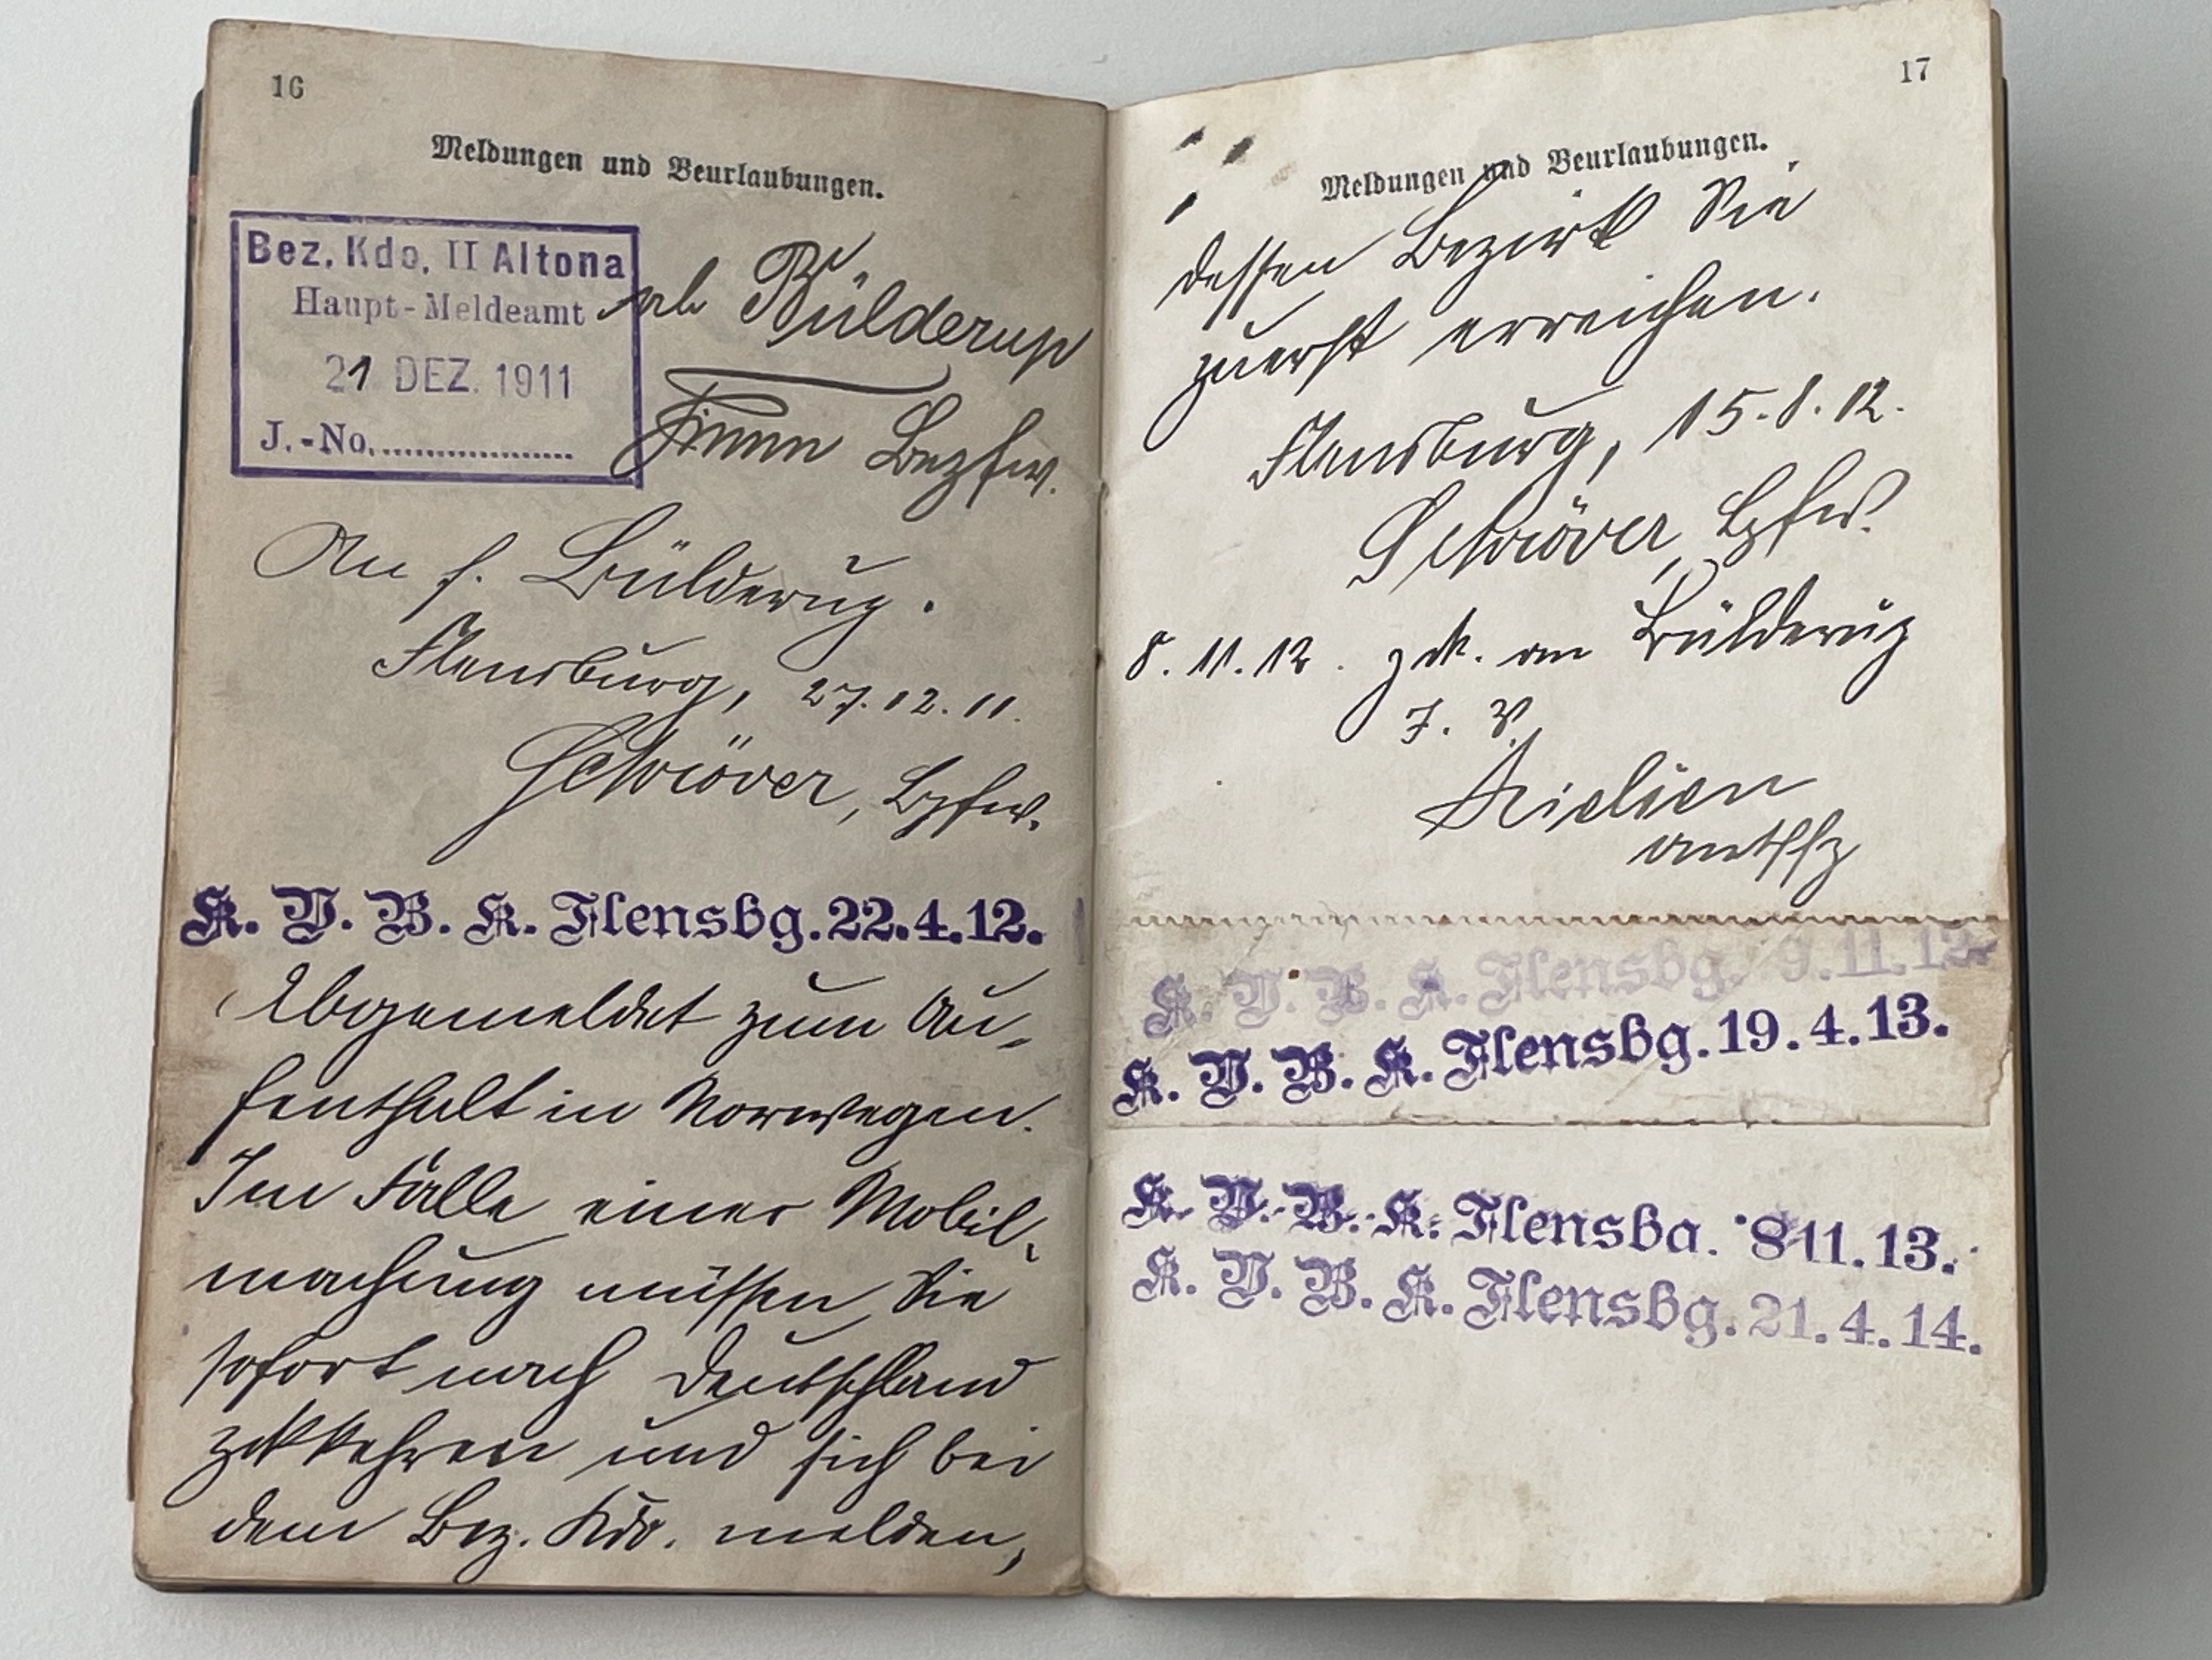 16
Meldungen und Beurlaubungen.
Bez. Kdo. II Altona
Haupt-Meldeamt
21 DEZ. 1911
J.-No.
ab Bülderup
Timm Bezfw.
An f. Bülderup.
Flensburg, 27.12.11.
Schröver, Bzfw.
K. V. B. K. Flensbg. 22.4.12.
Abgemeldet zum Au-
fenthalt in Norwegen.
Im Falle einer Mobil-
machung müssen Sie
sofort nach Deutschland
zurückkehren und sich bei
dem Bez. Kdo. melden,
17
Meldungen und Beurlaubungen.
dessen Bezirk Sie
zuerst erreichen.
Flensburg, 15.8.12.
Schröver, Bzfw.
8.11.12. zck. an Bülderup
I. V.
K. V. B. K. Flensbg. 9.11.12.
K. V. B. K. Flensbg. 19.4.13.
K. V. B. K. Flensbg. 8 11. 13.
K. V. B. K. Flensbg. 21. 4. 14.